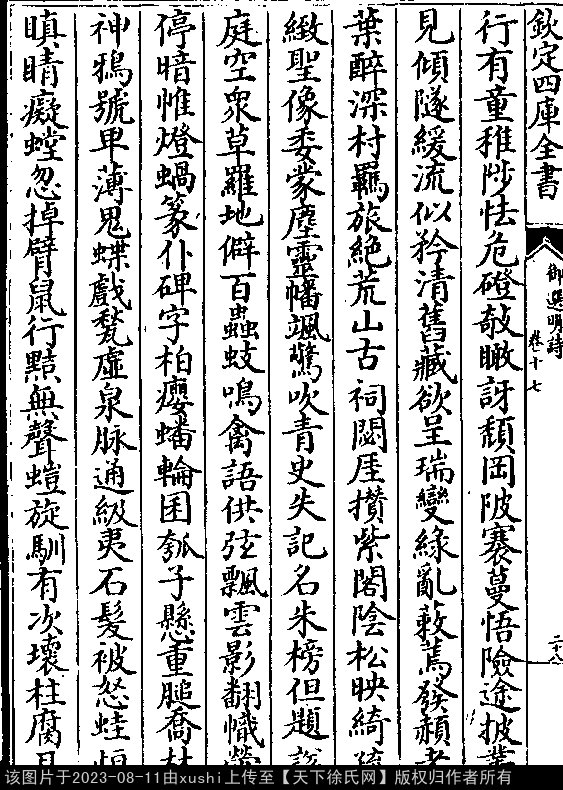 欽定四庫全書
御選明詩
卷十七
二十八
行有童稚陟怯危磴敧瞰訝頹岡陂褰蔓悟險途披叢
見傾隧緩流似矜清舊藏欲呈瑞變綠亂蔌蔫發赬老
葉醉深村羈旅絶荒山古祠閟厓攢紫閣陰松映綺疏
緻聖像委蒙塵靈幡颯驚吹青史失記名朱榜但題
庭空衆草羅地僻百蟲蚑鳴禽語供弦飄雲影翻幟
停暗帷燈蝸篆仆碑字柏癭蟠輪囷瓠子懸重膇喬
神鴉號畢薄鬼蝶戲甃虛泉脉通級夷石髪被怒蛙
瞋睛癡螳忽掉臂鼠行黠無聲螘旋馴有次壞柱腐
该图片于2023-08-11由xushi上传至【天下徐氏网】版权归作者所有